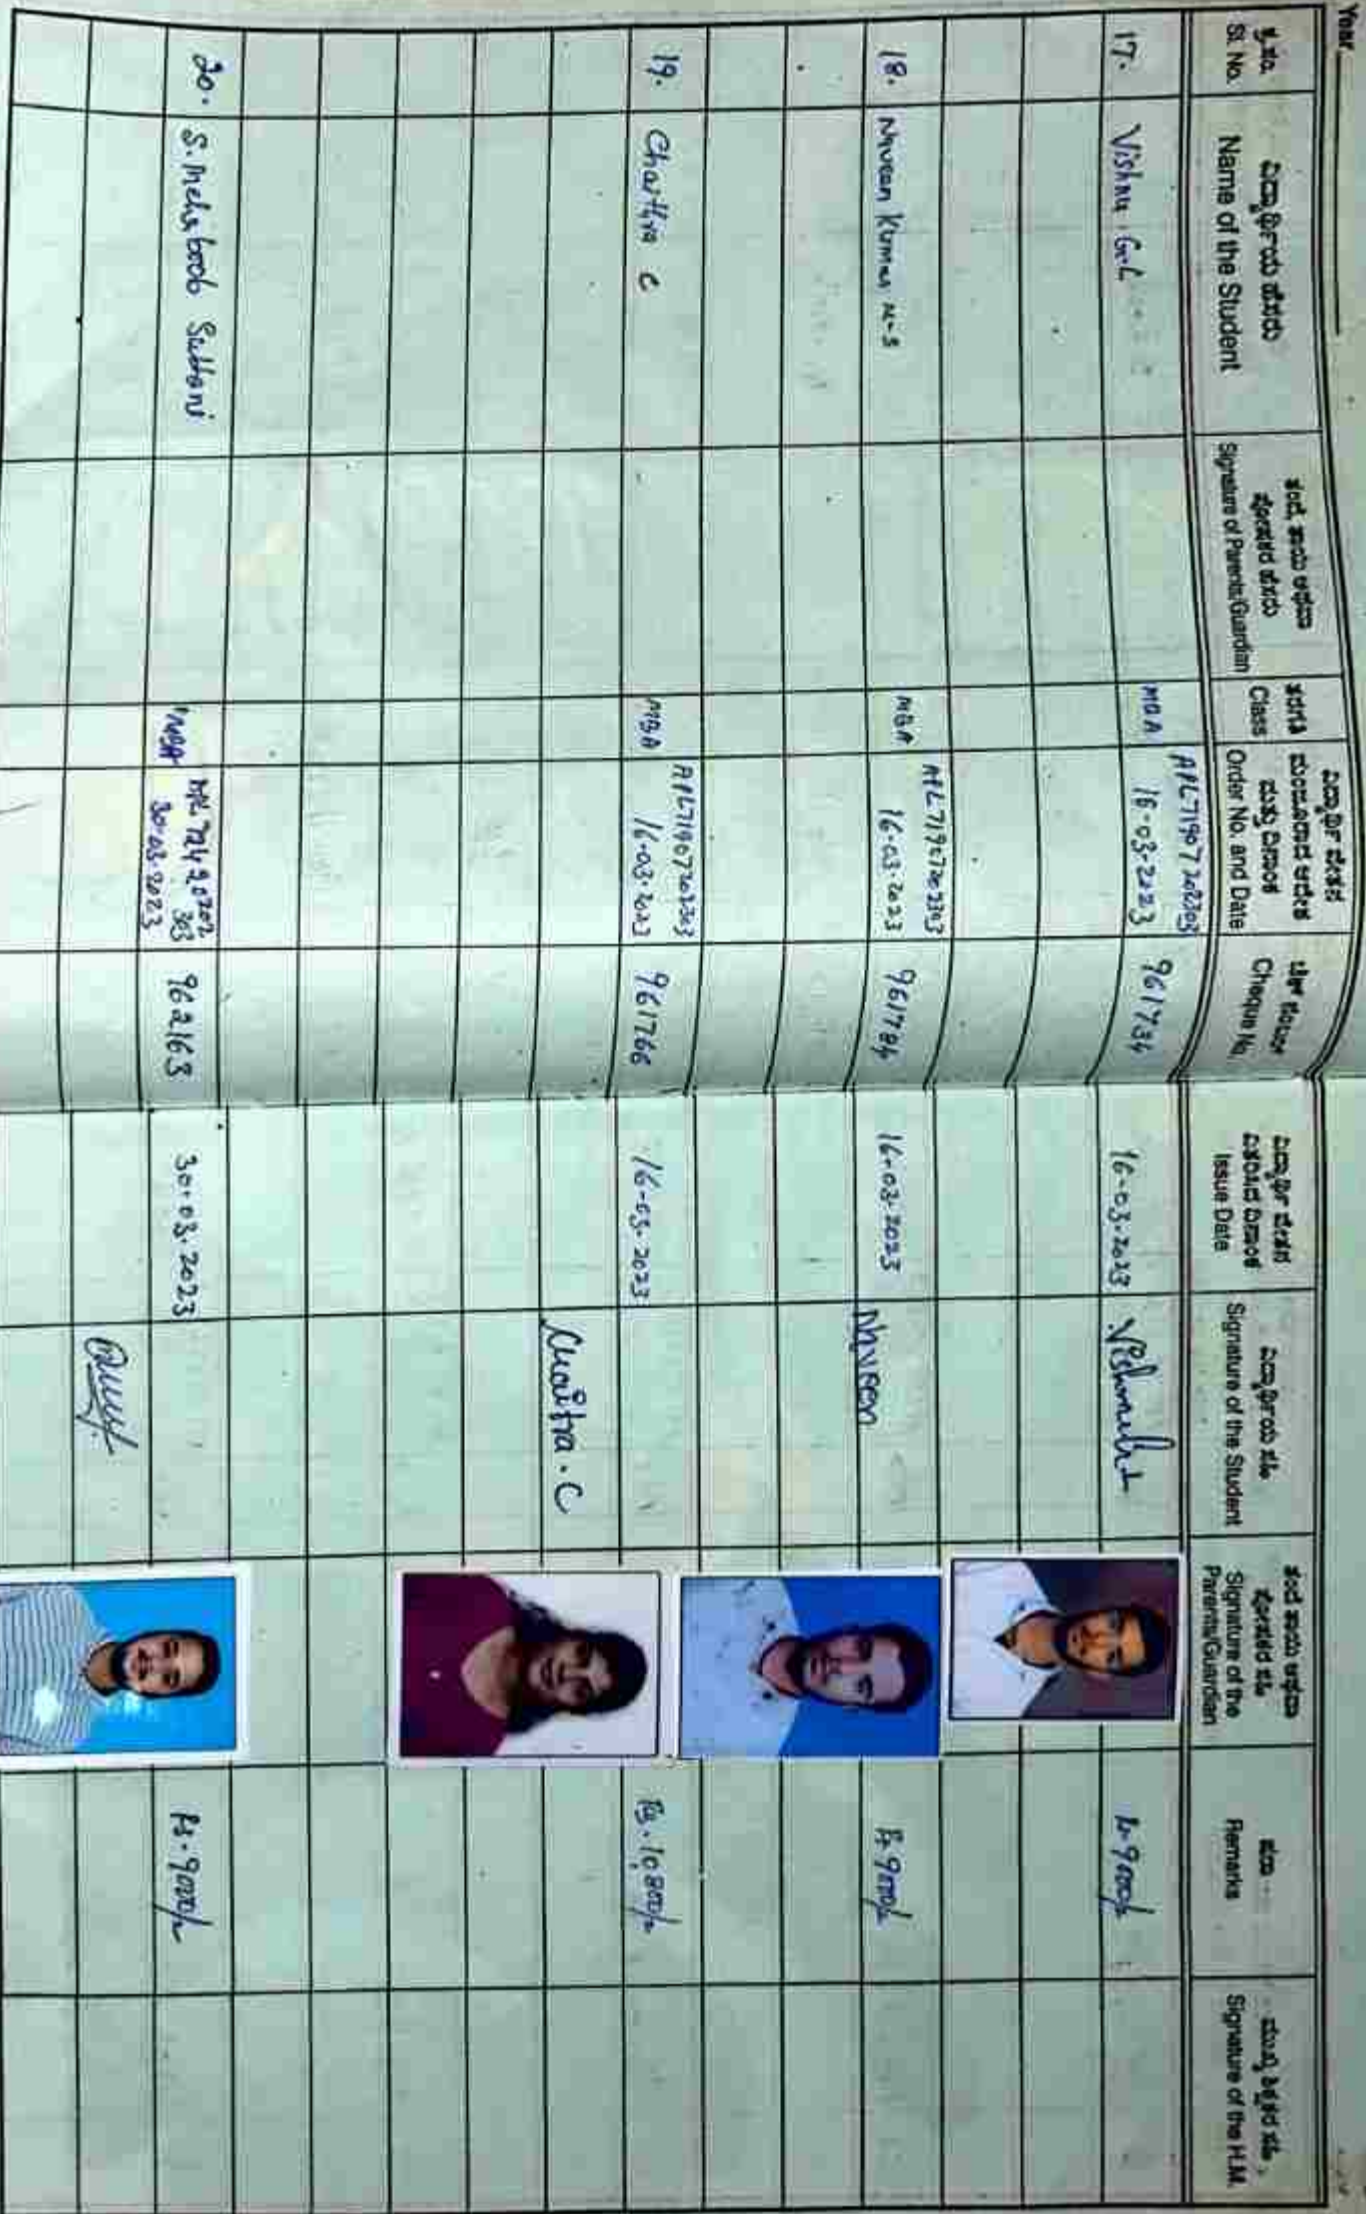 Year
ಕ್ರ.ಸಂ.
Sl. No.
ವಿದ್ಯಾರ್ಥಿಯ ಹೆಸರು
Name of the Student
ತಂದೆ, ತಾಯಿ ಅಥವಾ
ಪೋಷಕರ ಹೆಸರು
Signature of Parents/Guardian
ತರಗತಿ
Class
ವಿದ್ಯಾರ್ಥಿ ವೇತನ
ಮಂಜೂರಾದ ಆದೇಶ
ಮತ್ತು ದಿನಾಂಕ
Order No. and Date
ಚೆಕ್ ನಂಬರ್
Cheque No.
ವಿದ್ಯಾರ್ಥಿ ವೇತನ
ವಿತರಿಸಿದ ದಿನಾಂಕ
Issue Date
ವಿದ್ಯಾರ್ಥಿಯ ಸಹಿ
Signature of the Student
ತಂದೆ ತಾಯಿ ಅಥವಾ
ಪೋಷಕರ ಸಹಿ
Signature of the
Parents/Guardian
ಷರಾ
Remarks
ಮುಖ್ಯ ಶಿಕ್ಷಕರ ಸಹಿ
Signature of the H.M.
17. Vishnu. G.L MBA APL71907202303 16-03-2023 961734 16-03-2023 9000/-
18. Naveen Kumar M.S MBA APL71907202303 16-03-2023 961784 16-03-2023 Naveen Rs 9000/-
19. Chaithra C MBA APL71907202303 16-03-2023 961766 16-03-2023 Rs. 10800/-
Chaitra . C
20. S. Mehaboob Subhani MBA 30.03.2023 962163 30.03.2023 Rs. 9000/-